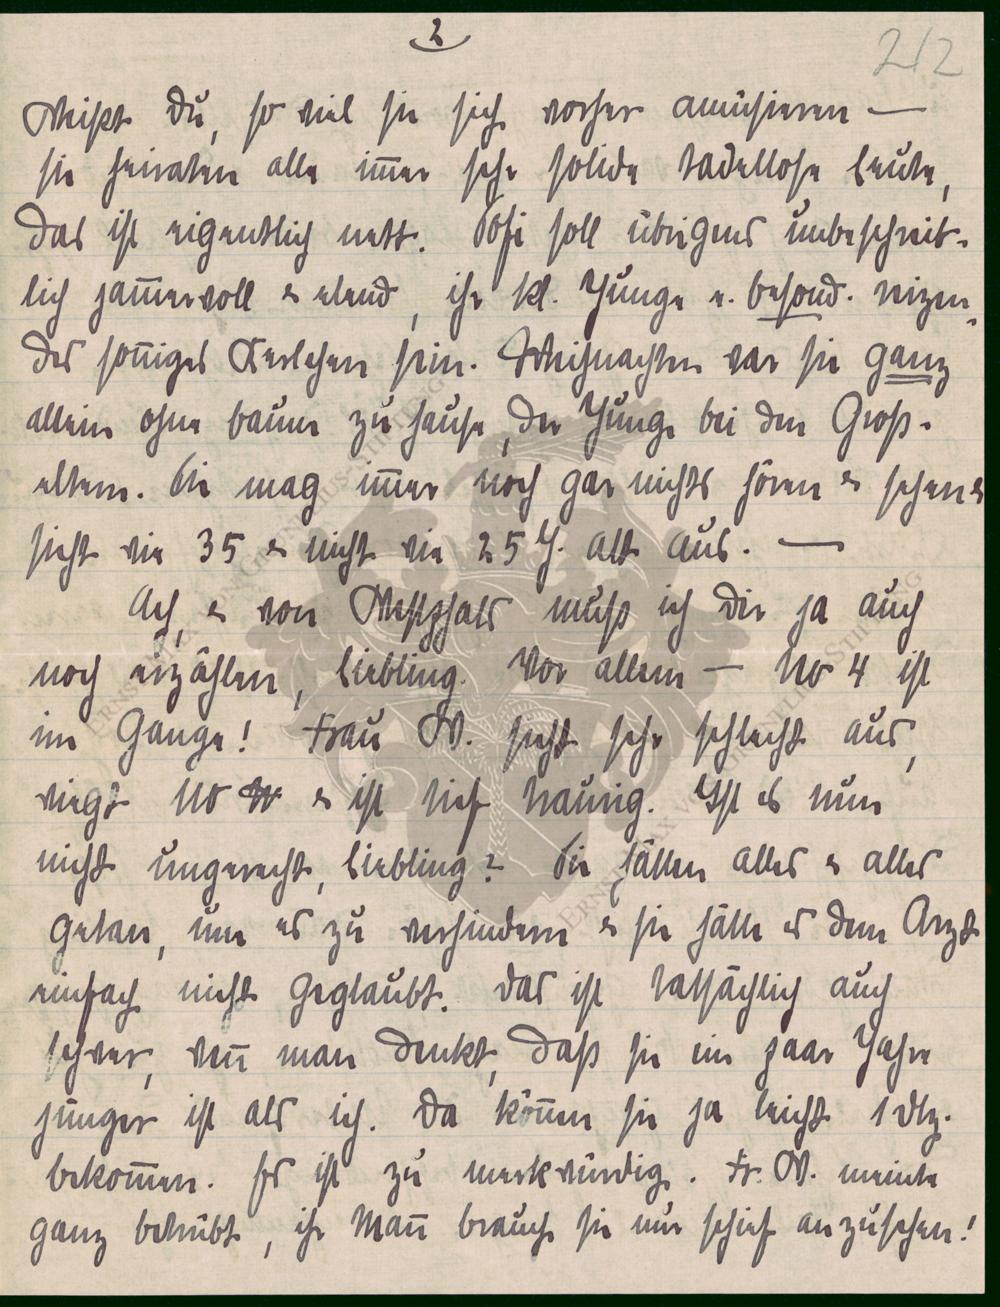 2
212
Weißt Du, so viel sie sich vorher amüsieren —
sie heiraten alle im̅er sehr solide tadellose Leute,
das ist eigentlich nett. Sofi soll übrigens unbeschreib-
lich jam̅ervoll & elend, ihr kl. Junge e. besond. reizen-
des son̅iges Kerlchen sein. Weihnachten war sie ganz
allein ohne Baum zu Hause, der Junge bei den Groß-
eltern. Sie mag im̅er noch gar nichts hören & sehen &
sieht wie 35 & nicht wie 25 J. alt aus. —
Ach, & von Westphals muß ich Dir ja auch
noch erzählen, Liebling. Vor allem — No 4 ist
im Gange! Frau W. sieht sehr schlecht aus,
wiegt No & ist tief traurig. Ist es nun
nicht ungerecht, Liebling? Sie hätten alles & alles
getan, um es zu verhindern & sie hätte es dem Arzt
einfach nicht geglaubt. Das ist tatsächlich auch
schwer, wen̅ man denkt, daß sie ein paar Jahre
jünger ist als ich. Da kön̅en sie ja leicht 1 Dtz.
bekom̅en. Es ist zu merkwürdig. Fr. W. meinte
ganz betrübt, ihr Man̅ brauche sie nur schief anzusehen!
ERNST MAX VON GRUNELIUS-STIFTUNG
ERNST MAX VON GRUNELIUS-STIFTUNG